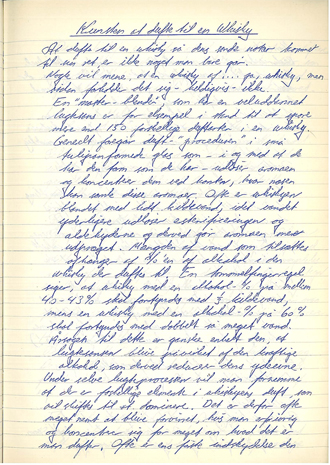 Kunsten at dufte til en Whisky
At dufte til en whisky så dens sande noter kommer
til sin ret er ikke noget man bare gør.
Nogle vil mene, at en whisky er.... ja, whisky, men
sådan forholder det sig - heldigvis - ikke.
En "master-blender", som har en veluddannet
lugtesans er for eksempel i stand til at spore
mere end 150 forskellige duftarter i en whisky.
Generelt foregår duft-proceduren i små
tulipanformede glas som - i og med at de
har den form som de har - udløser aromaen
og koncentrerer den ved kanten, hvor næsen
kan samle disse aromaer. Ofte er whiskyen
blandet med lidt kildevand, idet vandet
yderligere udløser esterificeringen og
aldehyderne og derved gør aromaen mere
udpræget. Mængden af vand som tilsættes
afhænger af %'en af alkohol i den
whisky der duftes til. En tommelfingerregel
siger, at whisky med en alkohol-% på mellem
40-43% skal fortyndes med kildevand,
mens en whisky med en alkohol-% på 60%
skal fortyndes med dobbelt så meget vand.
Årsagen til dette er ganske enkelt den, at
lugtesansen bliver irriteret af den kraftige
alkohol, som derved reducerer dens ydeevne.
Under selve lugteprocessen vil man fornemme
at der er forskellige elementer i whiskyens duft som
vil skiftes til at dominere. Det er derfor ofte
meget nemt at blive forvirret, hvis man
og koncentrerer sig for meget om hvad det er
man dufter. Ofte er ens første indskydelse den